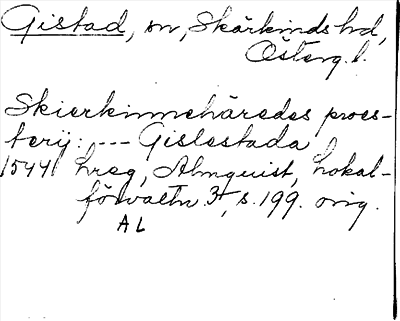 Gistad, sn, Skärkinds hd,
Österg. l.
Skierkinnehäredes proes-
terij: --- Gislestada
1544 hreg, Almquist, Lokal-
förvaltn. 3, s. 199. orig.
AL